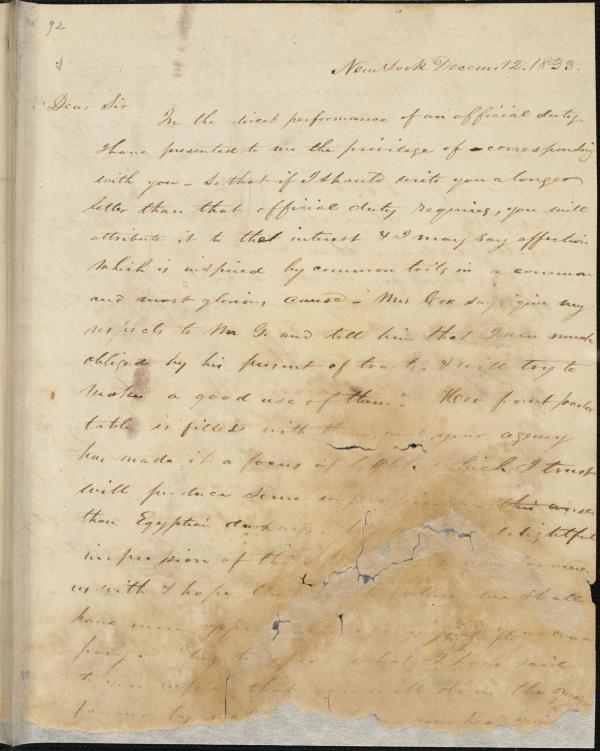 92
New York Decem. 12. 1833.
Dear Sir
In the direct performance of an official duty
I have presented to me the privilege of corresponding
with you – so that if I should write you a longer
letter than that official duty requires, you will
attribute it to that interest & I may say affection
which is inspired by common toils in a common
and most glorious cause – Mrs Cox says "give my
respects to Mr G. and tell him that I am much
obliged by his present of tracts, & will try to
make a good use of them." Her front parlor
table is filled with them and your agency
has made it a focus of light which I trust
will produce some in this worse
than Egyptian darkness. delightful
impression of the
us with & hope the future we shall
have more of your com
pany. I beg to what I have said
to you that you will do me the
by your